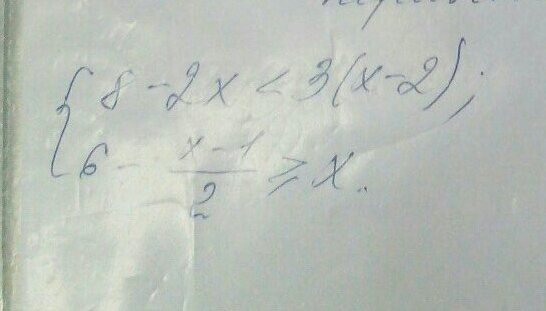 { 8 - 2x < 3(x-2);
6 - (x-1)/2 ≥ x.